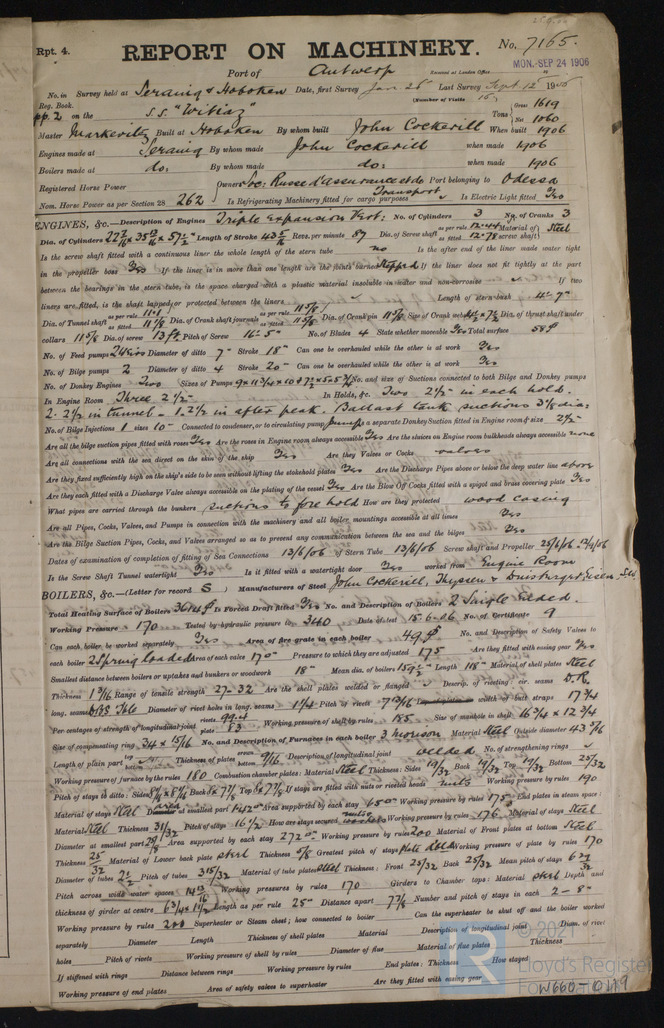 Rpt. 4.
REPORT ON MACHINERY. No. 7165.
Port of Antwerp
Received at London Office MON. SEP 24 1906
No. in Survey held at Seraing & Hoboken Date, first Survey Jan 26 Last Survey Sept. 12 1906
Reg. Book. (Number of Visits 16)
on the S.S. "Witiaz" Tons Gross 1619 Net 1060
Master Markevitz Built at Hoboken By whom built John Cockerill When built 1906
Engines made at Seraing By whom made John Cockerill when made 1906
Boilers made at do: By whom made do: when made 1906
Registered Horse Power Owners Soc: Russe d'assurance et de Transport Port belonging to Odessa
Nom. Horse Power as per Section 28 262 Is Refrigerating Machinery fitted for cargo purposes Is Electric Light fitted Yes
ENGINES, &c.—Description of Engines Triple Expansion Vert: No. of Cylinders 3 No. of Cranks 3
Dia. of Cylinders Length of Stroke Revs. per minute 87 Dia. of Screw shaft as per rule 12.44 as fitted 12.78 Material of screw shaft Steel
Is the screw shaft fitted with a continuous liner the whole length of the stern tube no Is the after end of the liner made water tight
in the propeller boss Yes If the liner is in more than one length are the joints burned If the liner does not fit tightly at the part
between the bearings in the stern tube, is the space charged with a plastic material insoluble in water and non-corrosive If two
liners are fitted, is the shaft lapped or protected between the liners Length of stern bush 4'- 7"
Dia. of Tunnel shaft as per rule 11.1 as fitted 11 5/8 Dia. of Crank shaft journals as per rule 11 5/8 as fitted 11 5/8 Dia. of Crank pin 11 5/8 Size of Crank webs Dia. of thrust shaft under
collars 11 5/8 Dia. of screw 13 ft Pitch of Screw 16'- 5" No. of Blades 4 State whether moveable Yes Total surface 58
No. of Feed pumps Diameter of ditto 7" Stroke 18" Can one be overhauled while the other is at work Yes
No. of Bilge pumps 2 Diameter of ditto 4 Stroke 20" Can one be overhauled while the other is at work Yes
No. of Donkey Engines Two Sizes of Pumps No. and size of Suctions connected to both Bilge and Donkey pumps
In Engine Room Three 2 1/2" In Holds, &c. Two 2 1/2" in each hold.
2. 2 1/2 in tunnel - 1. 2 1/2 in after peak. Ballast tank suctions 3 1/8 dia:
No. of Bilge Injections 1 sizes 10" Connected to condenser, or to circulating pump pump Is a separate Donkey Suction fitted in Engine room & size 2 1/2"
Are all the bilge suction pipes fitted with roses Yes Are the roses in Engine room always accessible Yes Are the sluices on Engine room bulkheads always accessible none
Are all connections with the sea direct on the skin of the ship Yes Are they Valves or Cocks valves
Are they fixed sufficiently high on the ship's side to be seen without lifting the stokehold plates Yes Are the Discharge Pipes above or below the deep water line above
Are they each fitted with a Discharge Valve always accessible on the plating of the vessel Yes Are the Blow Off Cocks fitted with a spigot and brass covering plate Yes
What pipes are carried through the bunkers suctions to fore hold How are they protected wood casing
Are all Pipes, Cocks, Valves, and Pumps in connection with the machinery and all boiler mountings accessible at all times Yes
Are the Bilge Suction Pipes, Cocks, and Valves arranged so as to prevent any communication between the sea and the bilges Yes
Dates of examination of completion of fitting of Sea Connections 13/6/06 of Stern Tube 13/6/06 Screw shaft and Propeller 25/6/06
Is the Screw Shaft Tunnel watertight Yes Is it fitted with a watertight door Yes worked from Engine Room
BOILERS, &c.—(Letter for record S) Manufacturers of Steel John Cockerill, Thyssen &
Total Heating Surface of Boilers Is Forced Draft fitted Yes No. and Description of Boilers 2 Single Ended.
Working Pressure 170 Tested by hydraulic pressure to 340 Date of test 15-6-06 No. of Certificate 9
Can each boiler be worked separately Yes Area of fire grate in each boiler 49 No. and Description of Safety Valves to
each boiler 2 Spring Loaded Area of each valve Pressure to which they are adjusted 175 Are they fitted with easing gear Yes
Smallest distance between boilers or uptakes and bunkers or woodwork 18" Mean dia. of boilers Length 118" Material of shell plates Steel
Thickness 1 3/16 Range of tensile strength 27-32 Are the shell plates welded or flanged Descrip. of riveting: cir. seams D.R.
long. seams Diameter of rivet holes in long. seams 1 1/4 Pitch of rivets 7 9/16 width of butt straps 17 3/4
Per centages of strength of longitudinal joint rivets 99.4 plate 83 Working pressure of shell by rules 185 Size of manhole in shell 16 3/4 x 12 3/4
Size of compensating ring 34 x 15/16 No. and Description of Furnaces in each boiler 3 morison Material Steel Outside diameter 43 5/16
Length of plain part top bottom Thickness of plates 9/16 Description of longitudinal joint welded No. of strengthening rings
Working pressure of furnace by the rules 180 Combustion chamber plates: Material Steel Thickness: Sides 19/32 Back 19/32 Top 19/32 Bottom 25/32
Pitch of stays to ditto: Sides Back Top If stays are fitted with nuts or riveted heads nuts Working pressure by rules 190
Material of stays Steel area at smallest part Area supported by each stay Working pressure by rules 175 End plates in steam space:
Material Steel Thickness 31/32 Pitch of stays 16 1/2 How are stays secured Working pressure by rules 176 Material of stays Steel
Diameter at smallest part Area supported by each stay 272 Working pressure by rules 200 Material of Front plates at bottom Steel
Thickness 25/32 Material of Lower back plate steel Thickness 5/8 Greatest pitch of stays Working pressure of plate by rules 170
Diameter of tubes 2 1/2 Pitch of tubes 3 15/32 Material of tube plates steel Thickness: Front 25/32 Back 25/32 Mean pitch of stays
Pitch across wide water spaces 14 13/16 Working pressures by rules 170 Girders to Chamber tops: Material steel Depth and
thickness of girder at centre Length as per rule 25" Distance apart 7 7/8 Number and pitch of stays in each 2 - 8"
Working pressure by rules 200 Superheater or Steam chest; how connected to boiler Can the superheater be shut off and the boiler worked
separately Diameter Length Thickness of shell plates Material Description of longitudinal joint Diam. of rivet
holes Pitch of rivets Working pressure of shell by rules Diameter of flue Material of flue plates Thickness
If stiffened with rings Distance between rings Working pressure by rules End plates: Thickness How stayed
Working pressure of end plates Area of safety valves to superheater Are they fitted with easing gear
© 2021
Lloyd's Register
Foundation
W660-0119